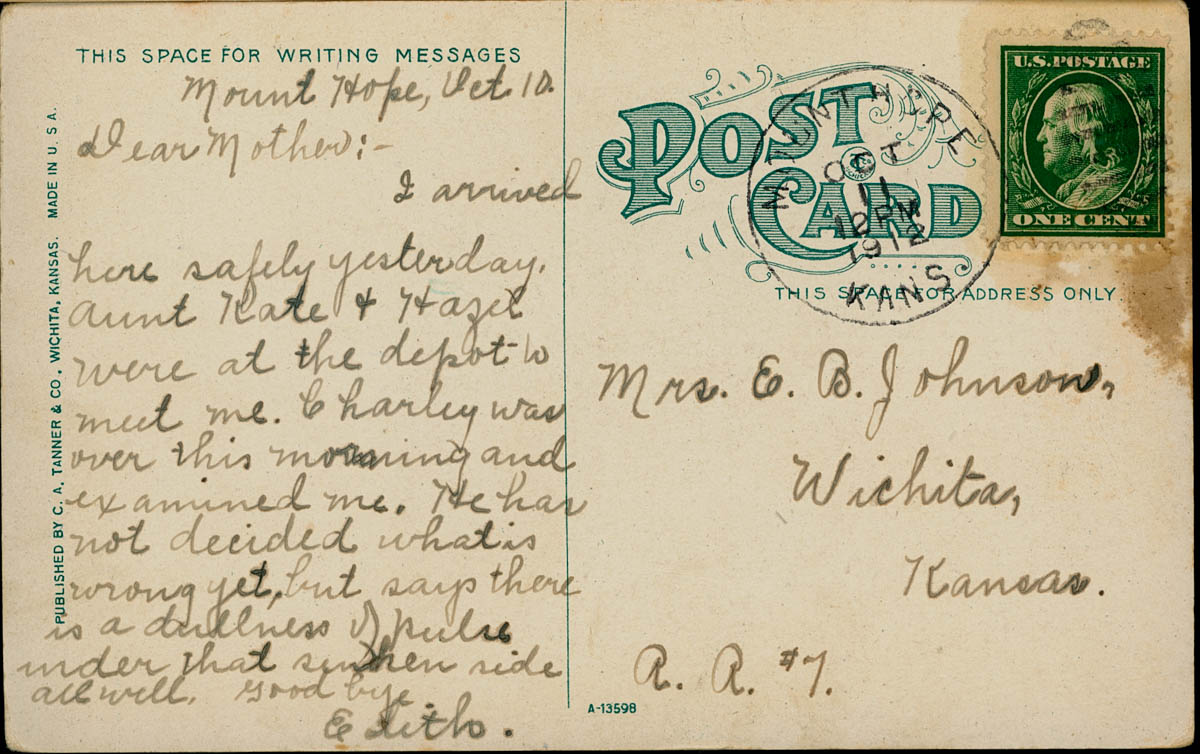 THIS SPACE FOR WRITING MESSAGES
Mount Hope, Oct. 10.
Dear Mother:-
I arrived
here safely yesterday.
Aunt Kate & Hazel
were at the depot to
meet me. Charley was
over this morning and
examined me. He has
not decided what is
wrong yet, but says there
is a dullness of pulse
under that sunken side
all well. Good bye
Edith.
PUBLISHED BY C. A. TANNER & CO., WICHITA, KANSAS. MADE IN U. S. A.
POST
CARD
MOUNT HOPE
OCT
11
12PM
1912
KANS
U.S. POSTAGE
ONE CENT
THIS SPACE FOR ADDRESS ONLY
Mrs. E. B. Johnson,
Wichita,
Kansas.
R. R. #7.
A-13598